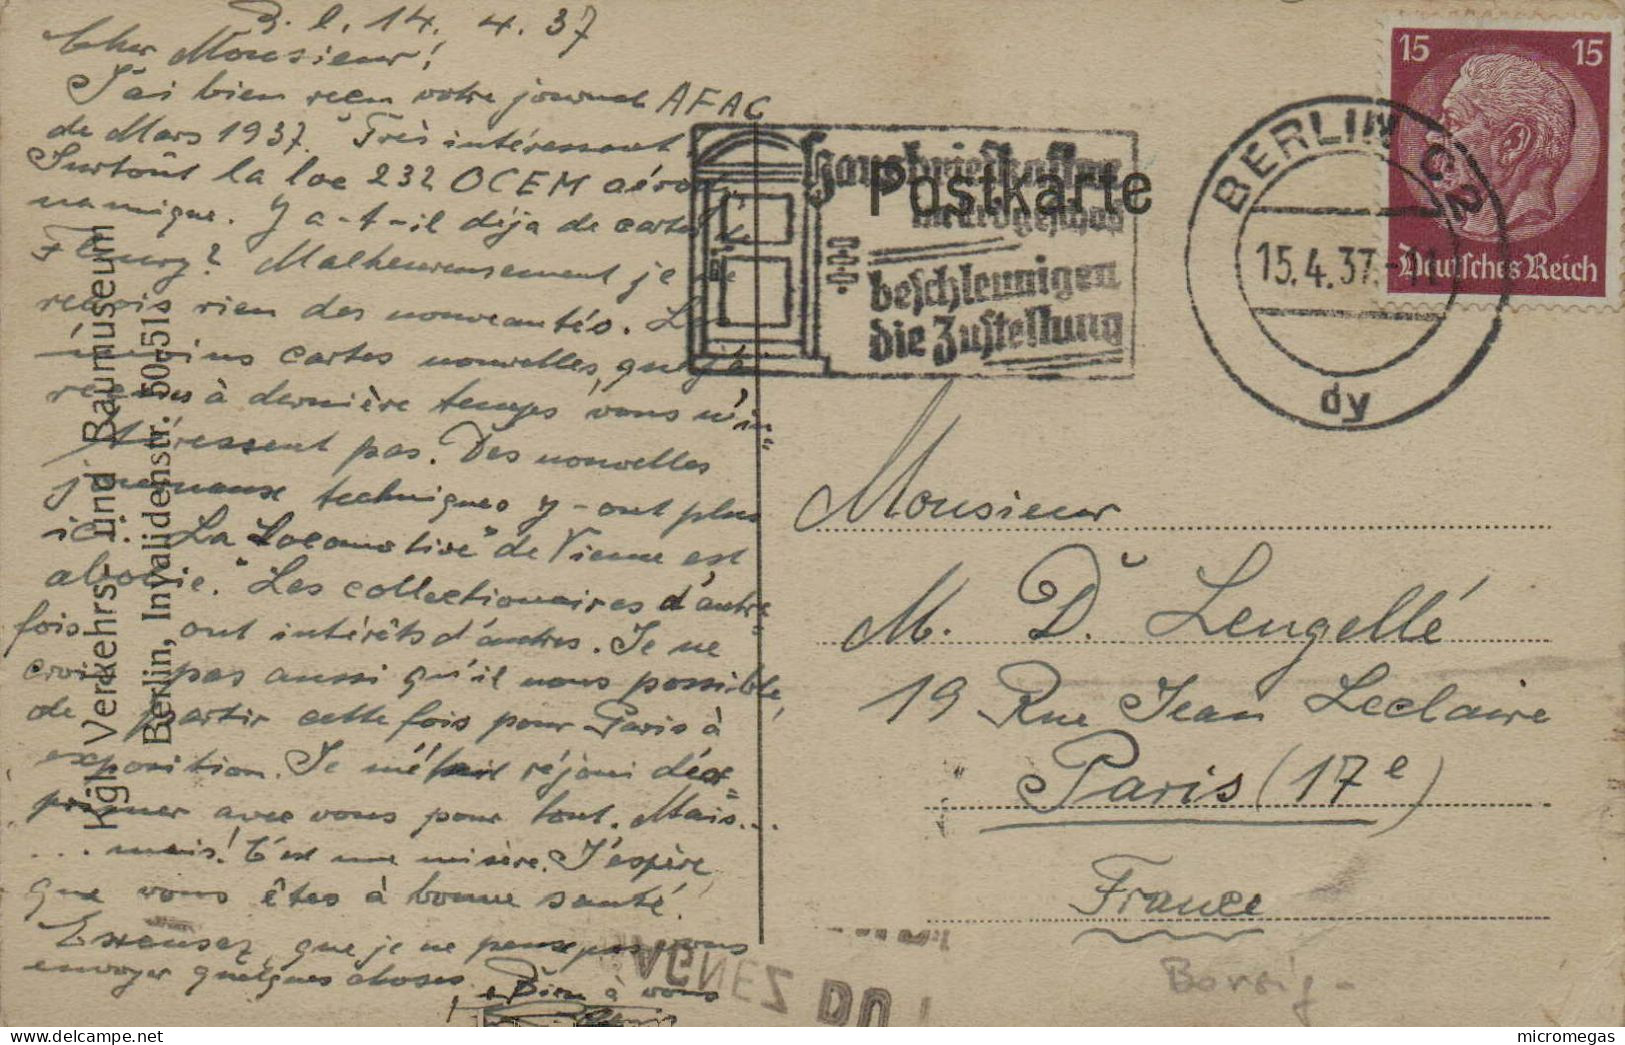 B. l. 14. 4. 37
Cher Monsieur!
J'ai bien recu votre journal AFAC
de Mars 1937. Très intéressant
Surtoût la loc 232 OCEM aérody-
namique. Y a-t-il déja de cartes de
Fleury? Malheureusement je ne
reçois rien des nouveautés. Les
moins cartes nouvelles, que j'ai
recues à dernière temps vous n'in=
téressent pas. Des nouvelles
journeaux techniques y-ont plus
ici. "La Locomotive" de Vienne est
abolie. Les collectionaires d'autre=
fois ont intérêts d'autres. Je ne
crois pas aussi qu'il nous possible,
de partir cette fois pour Paris à
exposition. Je réjoui d'ex=
primer avec vous pour tout. Mais...
... mais! C'est une misère. J'espère,
que vous êtes à bonne santé.
Excusez, que je ne peux pas vous
envoyer quelques choses.
Bien à vous
Kgl. Verkehrs- und Baumuseum
Berlin, Invalidenstr. 50-51
Postkarte
Hausbriefkasten
im Erdgeschoß
beschleunigen
die Zustellung
BERLIN C2
15.4.37.-11
dy
15 15
Deutsches Reich
Monsieur
M. D. Lengellé
19 Rue Jean Leclaire
Paris (17e)
France
Borsig
micromegas